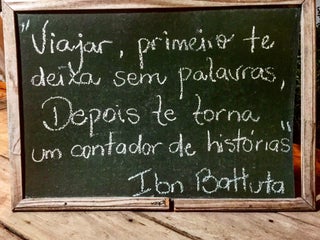 "Viajar, primeiro te
deixa sem palavras,
Depois te torna
um contador de histórias"
Ibn Battuta